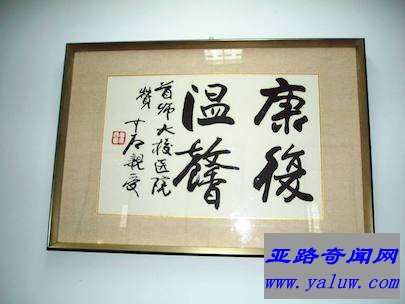 康復
温馨
首师大校医院
赞
親受
亚路奇闻网
www.yaluw.com